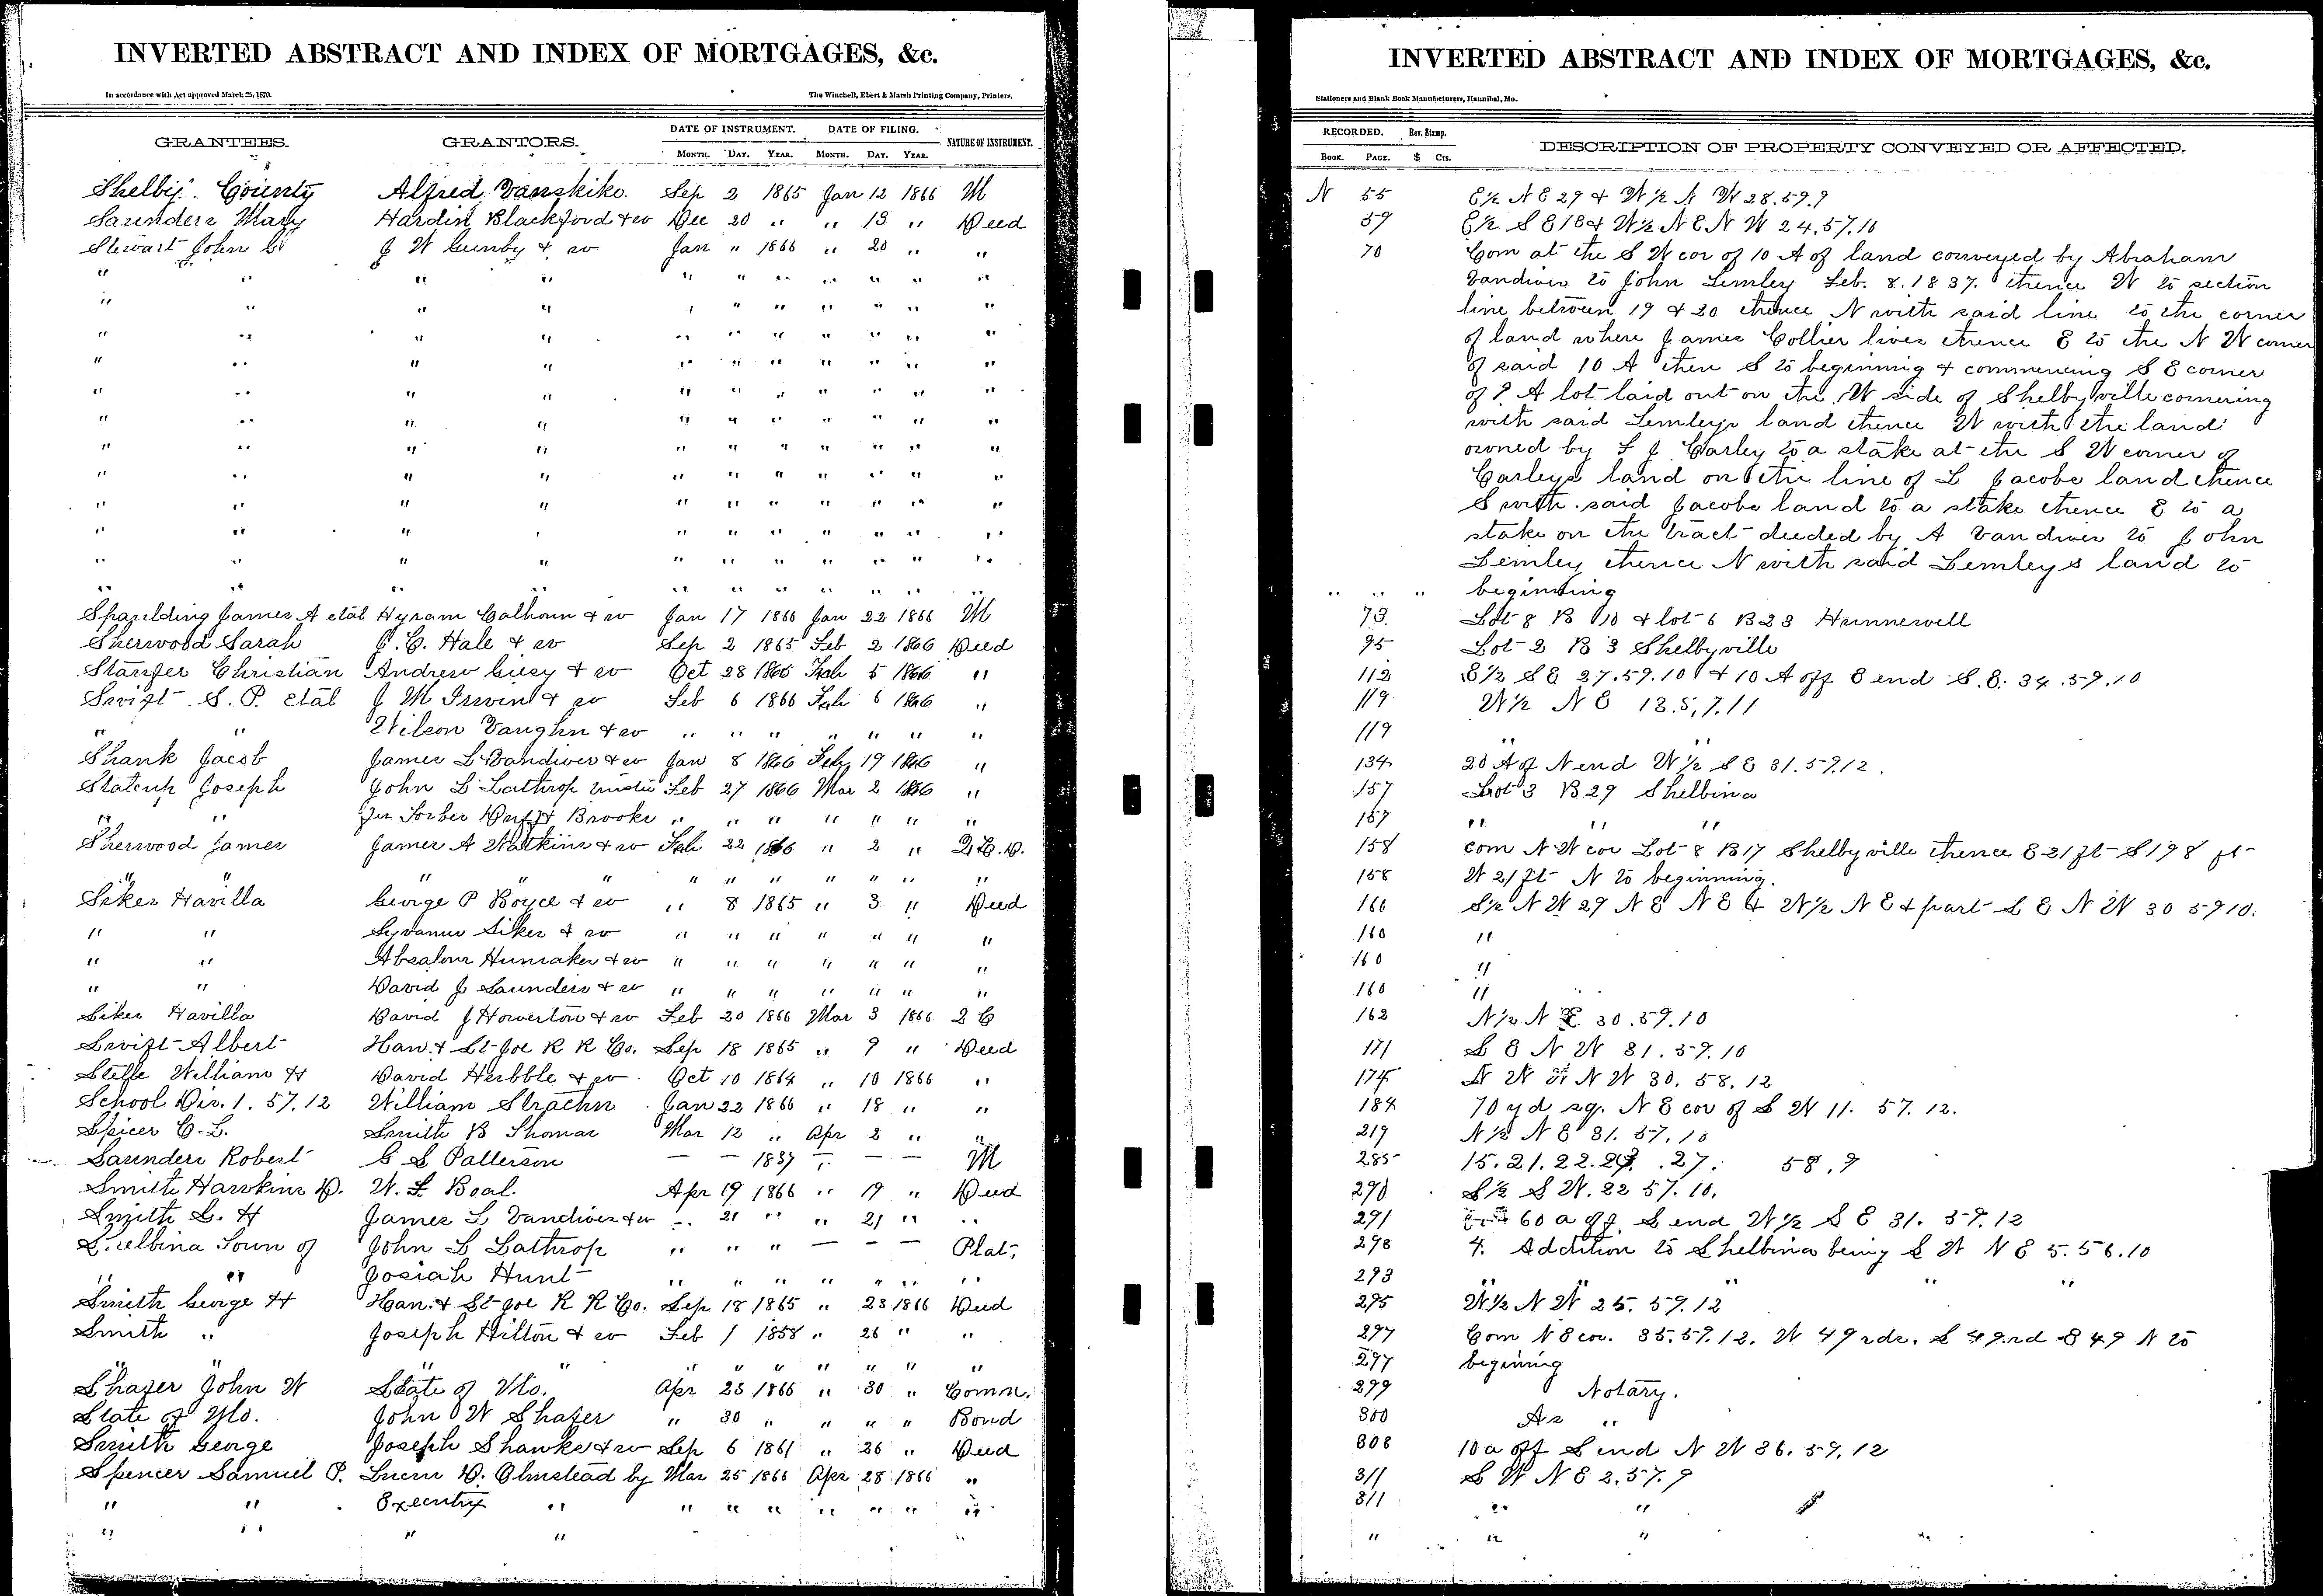 INVERTED ABSTRACT AND INDEX OF MORTGAGES, &c.
In accordance with Act approved March 25, 1870. The Winchell, Ebert & Marsh Printing Company, Printers,
GRANTEES. GRANTORS. DATE OF INSTRUMENT. DATE OF FILING. NATURE OF INSTRUMENT.
MONTH. DAY. YEAR. MONTH. DAY. YEAR.
Shelby County Alfred Vanskike. Sep 2 1865 Jan 12 1866 M
Saunders Mary Hardin Blackford & w Dec 20 " " 13 " Deed
Stewart John J W Gunby & w Jan " 1866 " 20 " "
" " " " " " " " " " "
" " " " " " " " " "
" " " " " " " " " " "
" " " " " " " " " " "
" " " " " " " " " " "
" " " " " " " " " " "
" " " " " " " " " " "
" " " " " " " " " " "
" " " " " " " " " " "
" " " " " " " " " "
" " " " " " " " " " "
" " " " " " " " " " "
Spaulding James A etal Hyram Calhoun & w Jan 17 1866 Jan 22 1866 M
Sherwood Sarah C. C. Hale & w Sep 2 1865 Feb 2 1866 Deed
Staufer Christian Andrew Gucy & w Oct 28 1865 Feb 5 1866 "
Swift S. P. etal J M Irwin & w Feb 6 1866 Feb 6 1866 "
" " Wilson Vaughn & w " " " " " " "
Shank Jacob James L Vandiver & w Jan 8 1866 Feb 19 1866 "
Statcup Joseph John L Lathrop trustee Feb 27 1866 Mar 2 1866 "
" " Brooks " " " " " " "
Sherwood James James A Watkins & w Feb 22 1866 " 2 " Q.C.D.
" " " " " " " " " " "
Sikes Havilla George P Boyce & w " 8 1865 " 3 " Deed
" " Sylvanus Sikes & w " " " " " " "
" " Absalom Hunsaker & w " " " " " " "
" " David J Saunders & w " " " " " " "
Sikes Havilla David J Howerton & w Feb 20 1866 Mar 3 1866 Q C
Swift Albert Han. & St Joe R R Co. Sep 18 1865 " 9 " Deed
William H David Hribble & w Oct 10 1864 " 10 1866 "
School Dis. 1. 57. 12 William Strachn Jan 22 1866 " 18 " "
Spicer C. L. Smith B Thomas Mar 12 " Apr 2 " "
Saunders Robert G S Patterson — — 1837 " — — M
Smith Hawkins D. W. L. Boal. Apr 19 1866 " 19 " Deed
Smith L. H James L Vandiver & w " 21 " " 21 " "
Shelbina Town of John L Lathrop " " " — — — Plat.
" " Josiah Hunt " " " " " " "
Smith George H Han. & St Joe R R Co. Sep 18 1865 " 23 1866 Deed
Smith " Joseph Hilton & w Feb 1 1858 " 26 " "
" " " " " " " " " " "
Shafer John W State of Mo. Apr 25 1866 " 30 " Comm.
State of Mo. John W Shafer " 30 " " " " Bond
Smith George Joseph Shanks & w Sep 6 1861 " 26 " Deed
Spencer Samuel P. D. Olmstead by Mar 25 1866 Apr 28 1866 "
" " Executrix " " " " " " " "
" " " " "
INVERTED ABSTRACT AND INDEX OF MORTGAGES, &c.
Stationers and Blank Book Manufacturers, Hannibal, Mo.
RECORDED. Rev. Stamp. DESCRIPTION OF PROPERTY CONVEYED OR AFFECTED.
BOOK. PAGE. $ Cts.
N 55 E½ N E 29 & W½ N W 28.59.9
59 E½ S E 18 & W½ N E N W 24.57.10
70 Com at the S W cor of 10 A of land conveyed by Abraham
Vandiver to John Lemley Feb. 8. 1837. thence W to section
line between 19 & 20 thence N with said line to the corner
of land where James Collier lives thence E to the N W corner
of said 10 A then S to beginning & commencing S E corner
of 9 A lot laid out on the W side of Shelbyville cornering
with said Lemleys land thence W with the land
owned by L J Carley to a stake at the S W corner of
Carleys land on the line of L Jacobs land thence
S with said Jacobs land to a stake thence E to a
stake on the tract deeded by A Vandiver to John
Lemley thence N with said Lemleys land to
" " " beginning
73. Lot 8 B 10 & lot 6 B 23 Hunnewell
95 Lot 2 B 3 Shelbyville
112 E½ S E 27.59.10 & 10 A off E end S. E. 34.59.10
119. W½ N E 13.57.11
119 "
134 20 A of N end W½ S E 31.59.12.
157 Lot 3 B 29 Shelbina
157 " " "
158 com N W cor Lot 8 B 17 Shelbyville thence E 21 ft S 198 ft
158 W 21 ft N to beginning.
160 S½ N W 29 N E N E & W½ N E & part S E N W 30 59 10.
160 "
160 "
160 "
162 N½ N E 30.59.10
171 S E N W 31.59.10
175 N W fr N W 30. 58. 12
184 70 yd sq. N E cor of S W 11. 57. 12.
219 N½ N E 31. 57. 10
285 15. 21. 22. 27. 58. 9
290 S½ S W. 22 57. 10.
291 60 a off S end W½ S E 31. 59. 12
293 4. Addition to Shelbina being S W N E 5. 56. 10
293 " " " "
295 W½ N W 25. 59. 12
297 Com N E cor. 35. 59. 12. W 49 rds. S 49 rd E 49 N to
297 begining
299 Notary.
300 As "
308 10 a off S end N W 36. 59. 12
311 S W N E 2. 57. 9
311 " "
" " "